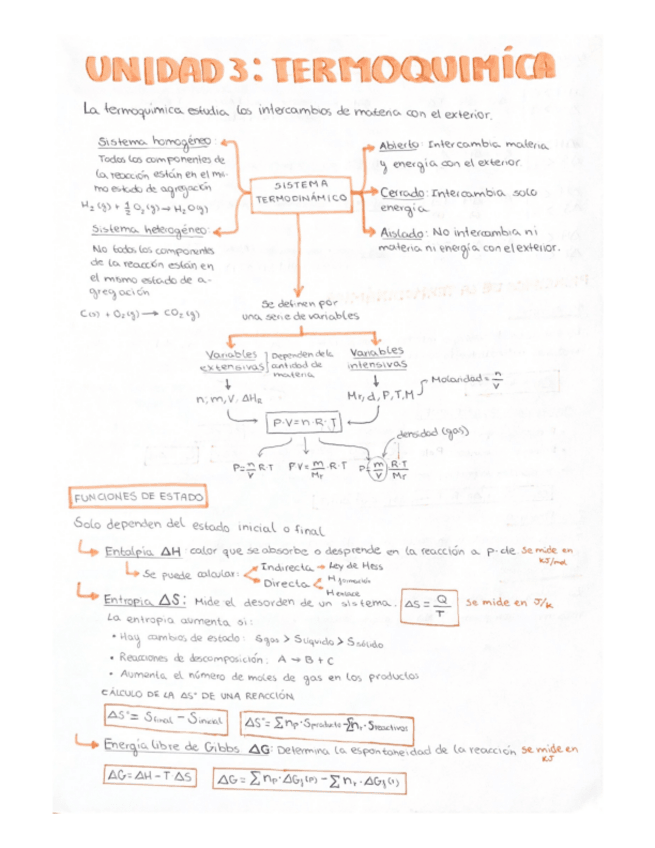 UNIDAD 3: TERMOQUIMÍCA
La termoquímica estudia los intercambios de materia con el exterior.
Sistema homogéneo:
Todos los componentes de
la reacción están en el mis-
mo estado de agregación
H₂(g) + ½ O₂(g) → H₂O(g)
Sistema heterogéneo:
No todos los componentes
de la reacción están en
el mismo estado de a-
gregación
C(s) + O₂(g) → CO₂(g)
SISTEMA
TERMODINÁMICO
Abierto: Intercambia materia
y energía con el exterior.
Cerrado: Intercambia solo
energía
Aislado: No intercambia ni
materia ni energía con el exterior.
Se definen por
una serie de variables
Variables
extensivas
Dependen de la
cantidad de
materia
Variables
intensivas
n, m, V, ΔHR
Mr, d, P, T, M
Molaridad = n/V
P·V=n·R·T
densidad (gas)
P=n/V R·T
PV=m/Mr·R·T
P=m/V R·T/Mr
FUNCIONES DE ESTADO
Solo dependen del estado inicial o final
Entalpia ΔH: calor que se absorbe o desprende en la reacción a p.cte Se mide en
KJ/mol
Se puede calcular:
Indirecta → Ley de Hess
Directa
H formación
H enlace
Entropía ΔS: Mide el desorden de un sistema. ΔS = Q/T Se mide en J/k
La entropía aumenta si:
• Hay cambios de estado: Sgas > Slíquido > Ssólido
• Reacciones de descomposición: A → B + C
• Aumenta el número de moles de gas en los productos
CÁLCULO DE LA ΔS° DE UNA REACCIÓN
ΔS°= Sfinal - Sinicial
ΔS°= Σnp·Sproducto - Σnr·Sreactivos
Energía libre de Gibbs ΔG: Determina la espontaneidad de la reacción se mide en
KJ
ΔG=ΔH-T ΔS
ΔG = Σnp·ΔGf(p) - Σnr·ΔGf(r)